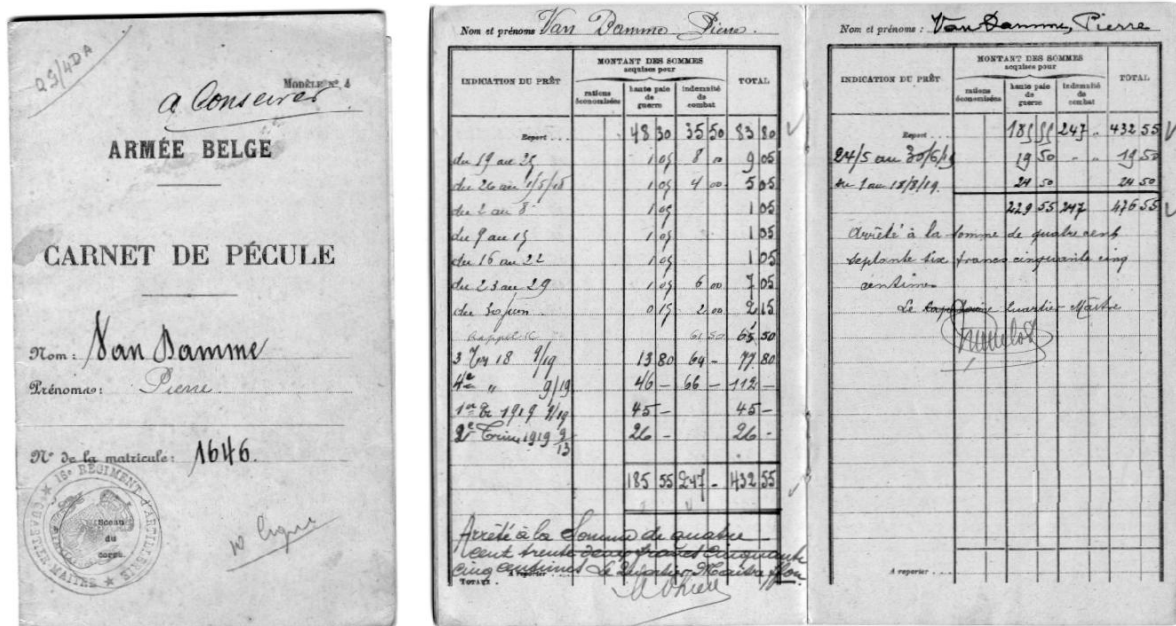 QS/4DA
MODÈLE Nº. 4
a Conserver
ARMÉE BELGE
CARNET DE PÉCULE
Nom : Van Damme
Prénoms : Pierre
Nº de la matricule : 1646.
QUARTIER-MAITRE ★ 18e REGIMENT d'ARTILLERIE ★
Sceau
du
corps
Nom et prénoms Van Damme Pierre.
INDICATION DU PRÊT
MONTANT DES SOMMES
acquises pour
rations économisées
haute paie de guerre
indemnité de combat
TOTAL
Report . . . 48 30 35 50 83 80
du 19 au 25 1 05 8 00 9 05
du 26 au 1/5/18 1 05 4 00 5 05
du 2 au 8 1 05 1 05
du 9 au 15 1 05 1 05
du 16 au 22 1 05 1 05
du 23 au 29 1 05 6 00 7 05
du 30 juin 0 15 2 00 2 15
Rappel 61 50 65 50
3 Tr 18 9/19 13 80 64 - 77 80
4e " 9/19 46 - 66 - 112 -
1er Tr 1919 9/19 45 - 45 -
2e Trim 1919 26 - 26 -
185 55 247 - 432 55
Arrêté à la Somme de quatre
cent trente deux francs cinquante
cinq centimes Le Quartier Maitre
A reporter . . .
TOTAUX
Nom et prénoms : Van Damme, Pierre
INDICATION DU PRÊT
MONTANT DES SOMMES
acquises pour
rations économisées
haute paie de guerre
indemnité de combat
TOTAL
Report . . . 185 55 247 " 432 55
24/5 au 30/6/19 19 50 - " 19 50
du 1 au 18/8/19. 24 50 24 50
229 55 247 476 55
Arrêté à la somme de quatre cent
septante six francs cinquante cinq
centimes
Le Quartier Maître
A reporter . . .